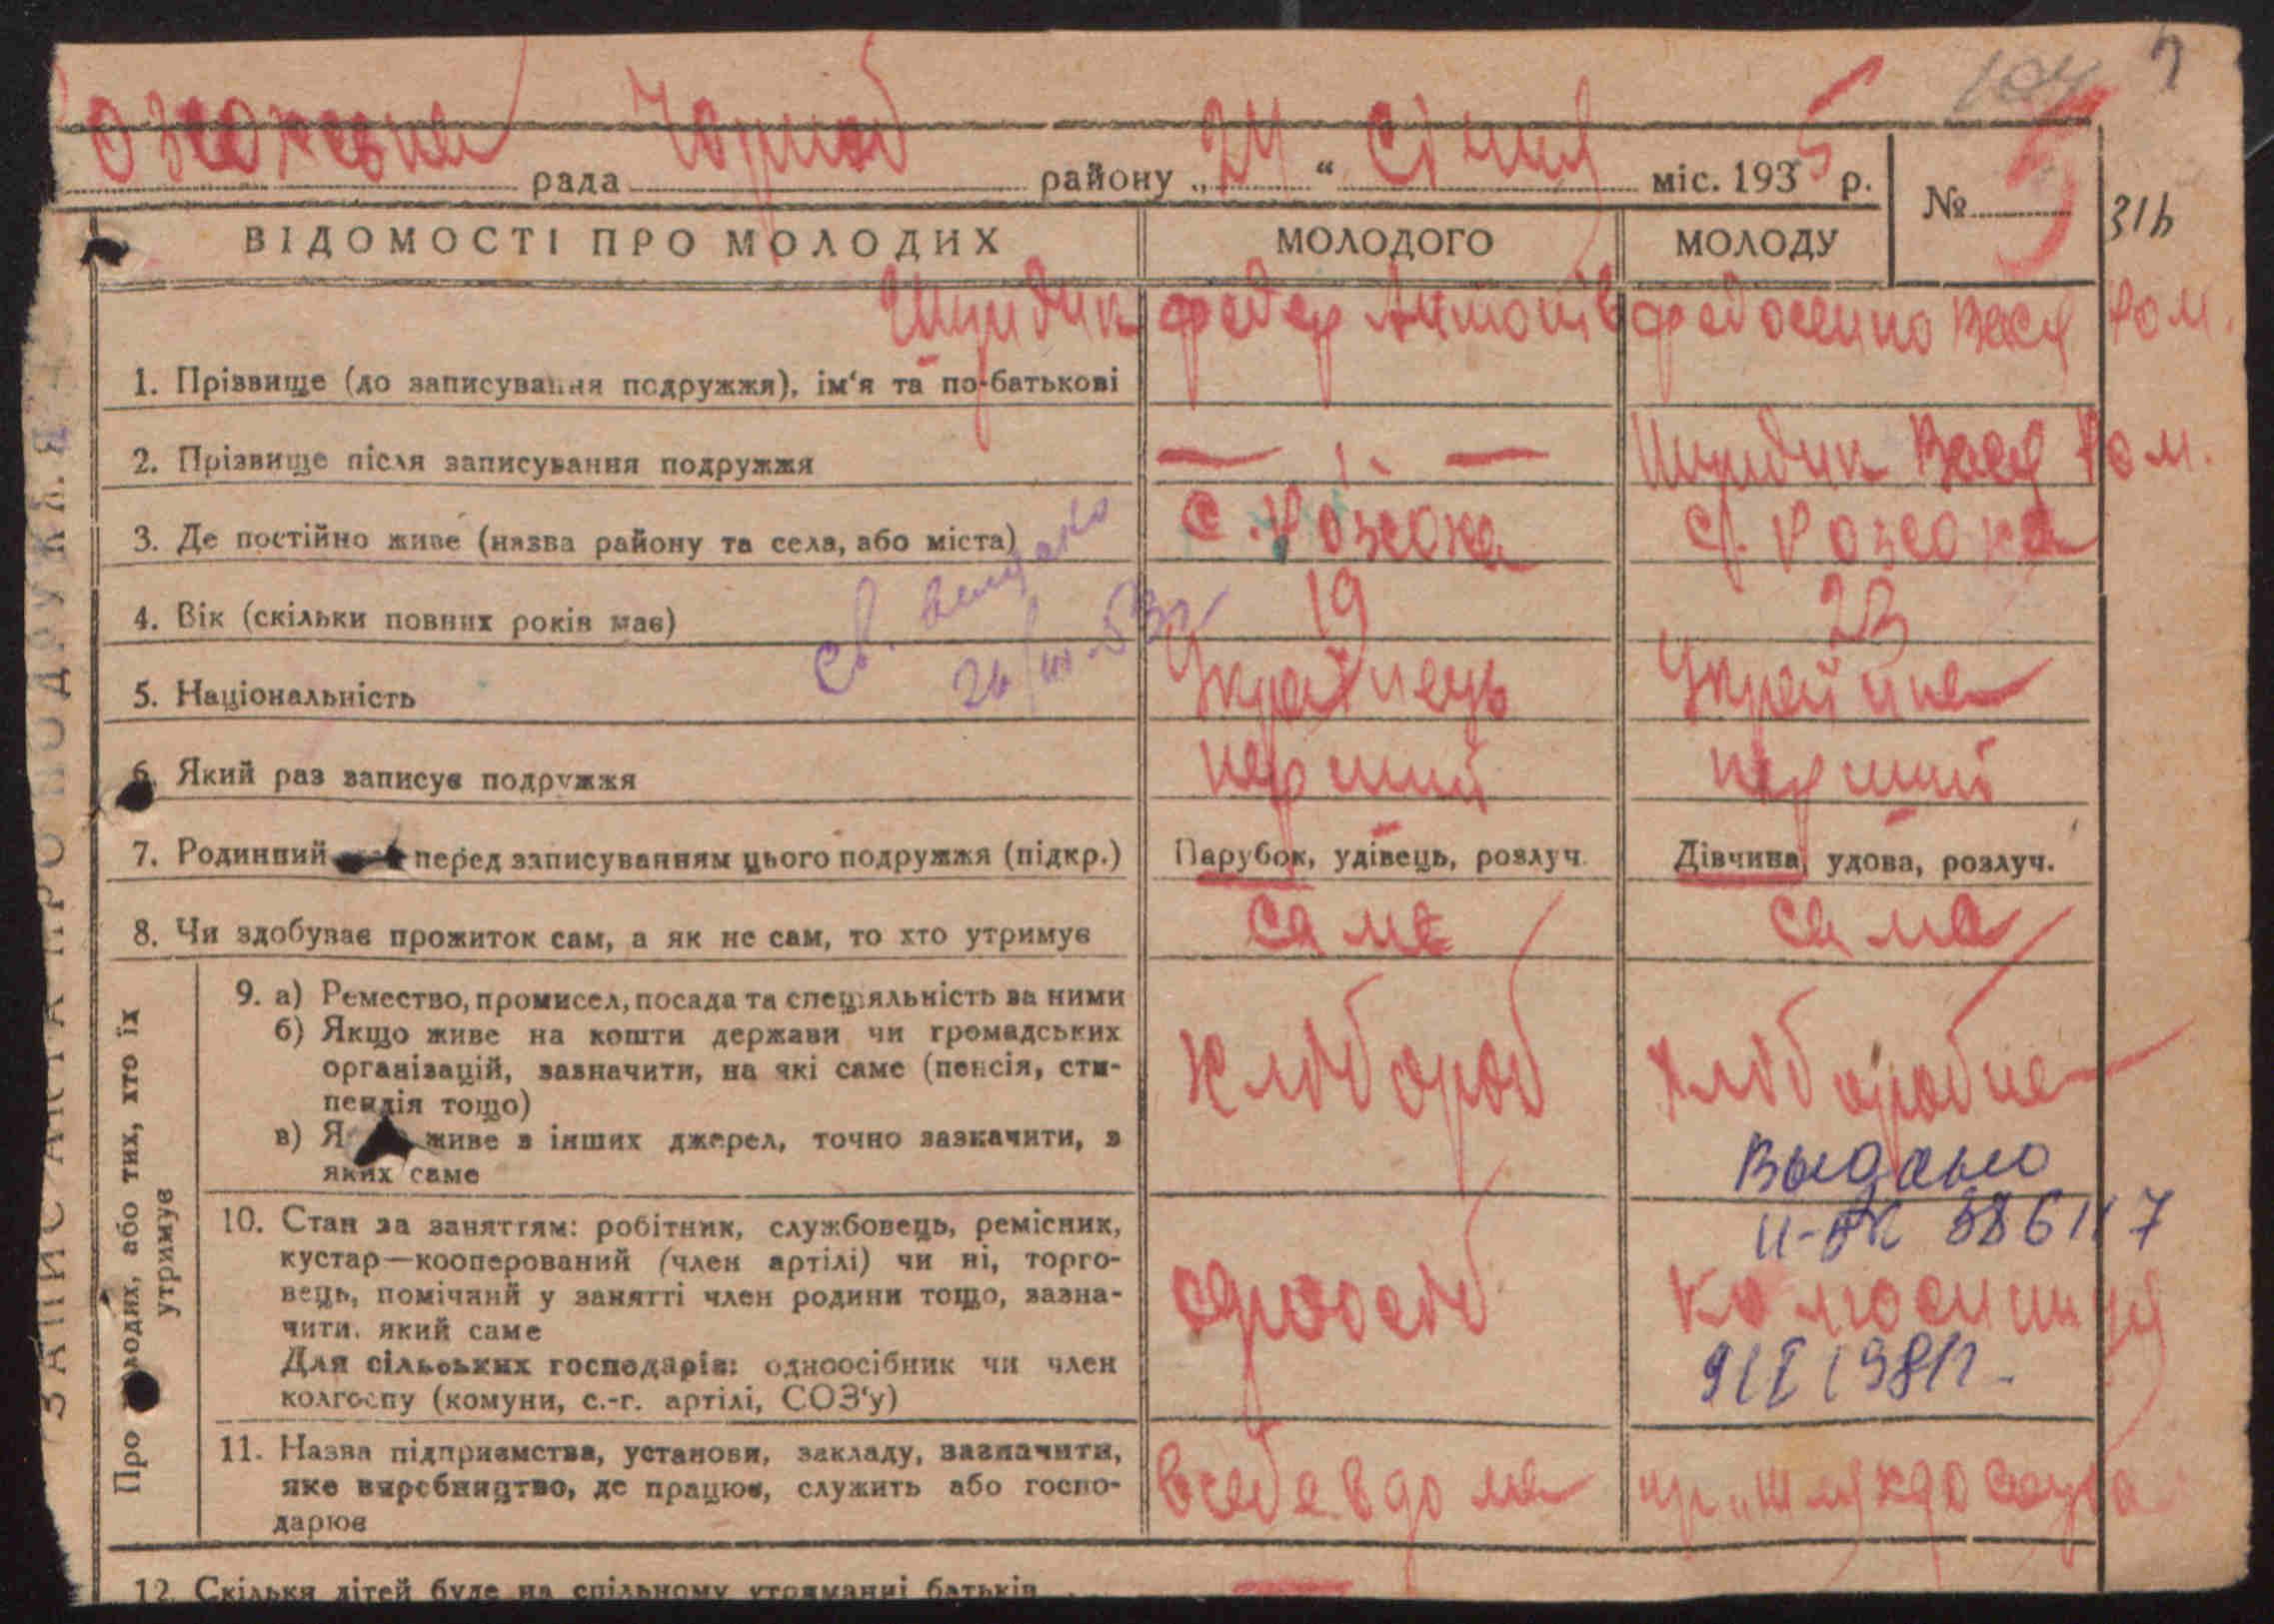 104
рада Чорноб району „ 24 “ Січня міс. 1935 р.
№ 5
316
ВІДОМОСТІ ПРО МОЛОДИХ МОЛОДОГО МОЛОДУ
1. Прізвище (до записування подружжя), ім‘я та по-батькові Федор Антонів Федосенко Ром.
2. Прізвище після записування подружжя — — Ром.
3. Де постійно живе (назва району та села, або міста) с. Розсоха с. Розсоха
4. Вік (скільки повних років має) 19 23
Св.
26/III-53г
5. Національність Українець Українка
6. Який раз записує подружжя перший перший
7. Родинний перед записуванням цього подружжя (підкр.) Парубок, удівець, розлуч. Дівчина, удова, розлуч.
8. Чи здобуває прожиток сам, а як не сам, то хто утримує сам сама
Про молодих, або тих, хто їх утримує
9. а) Ремество, промисел, посада та спеціяльність за ними
б) Якщо живе на кошти держави чи громадських
організацій, зазначити, на які саме (пенсія, сти-
пендія тощо)
в) Я живе з інших джерел, точно зазначити, з
яких саме
Хлібороб Хліборобка
Выдано
II-БК 386117
10. Стан за заняттям: робітник, службовець, ремісник,
кустар—кооперований (член артілі) чи ні, торго-
вець, помічний у занятті член родини тощо, зазна-
чити, який саме
Для сільських господарів: одноосібник чи член
колгоспу (комуни, с.-г. артілі, СОЗ‘у)
колгоспниця
9/I 1981г.
11. Назва підприємства, установи, закладу, зазначити,
яке виробництво, де працює, служить або госпо-
дарює
в себе вдома
12. Скільки дітей буде на спільному утриманні батьків —
ЗАПИС АКТА ПРО ПОДРУЖЖЯ